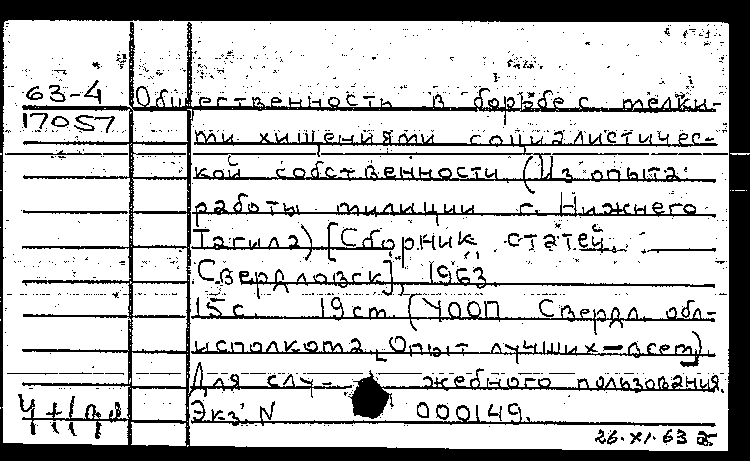 63-4 Общественность в борьбе с мелки-
17057 ми хищениями социалистичес-
кой собственности (Из опыта
работы милиции г. Нижнего
Тагила) [Сборник статей.
Свердловск], 1963.
15 с. 19 см. (УООП Свердл. обл-
исполкома. Опыт лучших — всем).
Для слу- жебного пользования.
Экз. N 000149.
26.XI.63